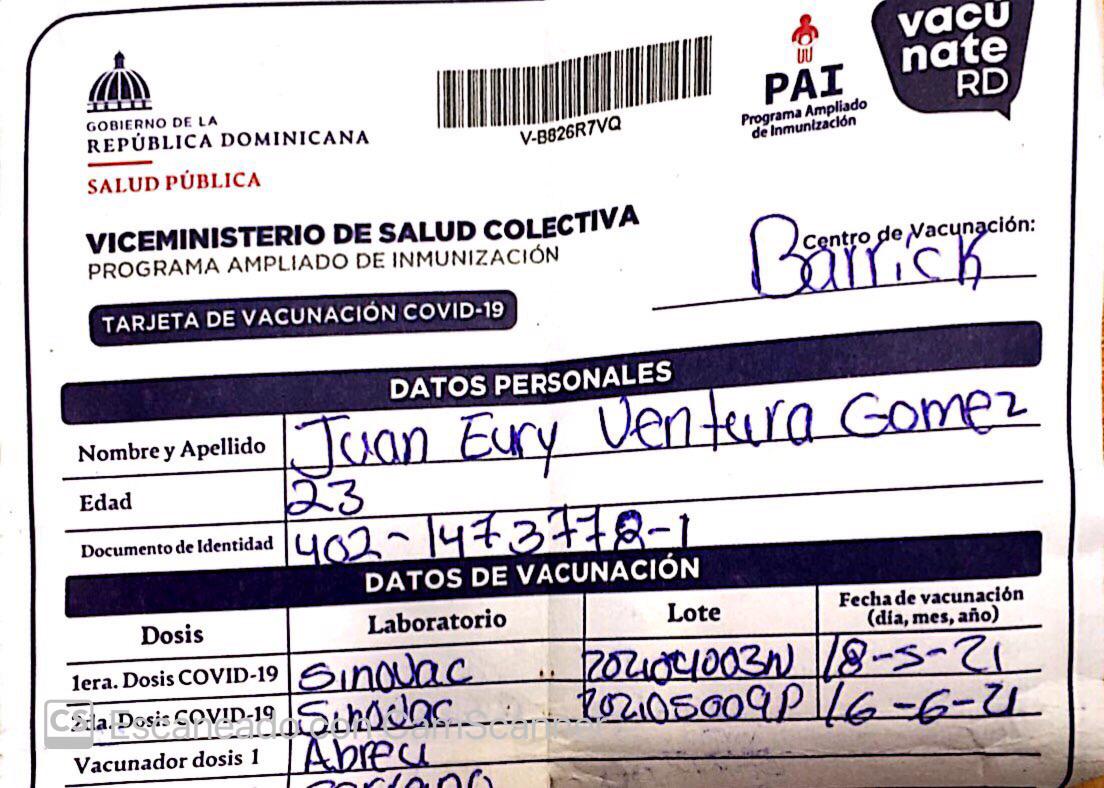 vacú
nate
RD
PAI
Programa Ampliado
de Inmunización
V-B826R7VQ
GOBIERNO DE LA
REPÚBLICA DOMINICANA
SALUD PÚBLICA
VICEMINISTERIO DE SALUD COLECTIVA
PROGRAMA AMPLIADO DE INMUNIZACIÓN
Centro de Vacunación:
Barrick
TARJETA DE VACUNACIÓN COVID-19
DATOS PERSONALES
Nombre y Apellido Juan Eury Ventura Gomez
Edad 23
Documento de Identidad 402-1473778-1
DATOS DE VACUNACIÓN
Dosis Laboratorio Lote Fecha de vacunación
(día, mes, año)
1era. Dosis COVID-19 Sinovac 202104003N 18-5-21
2da. Dosis COVID-19 Sinovac 202105009P 16-6-21
CS Escaneado con CamScanner
Vacunador dosis 1 Abreu